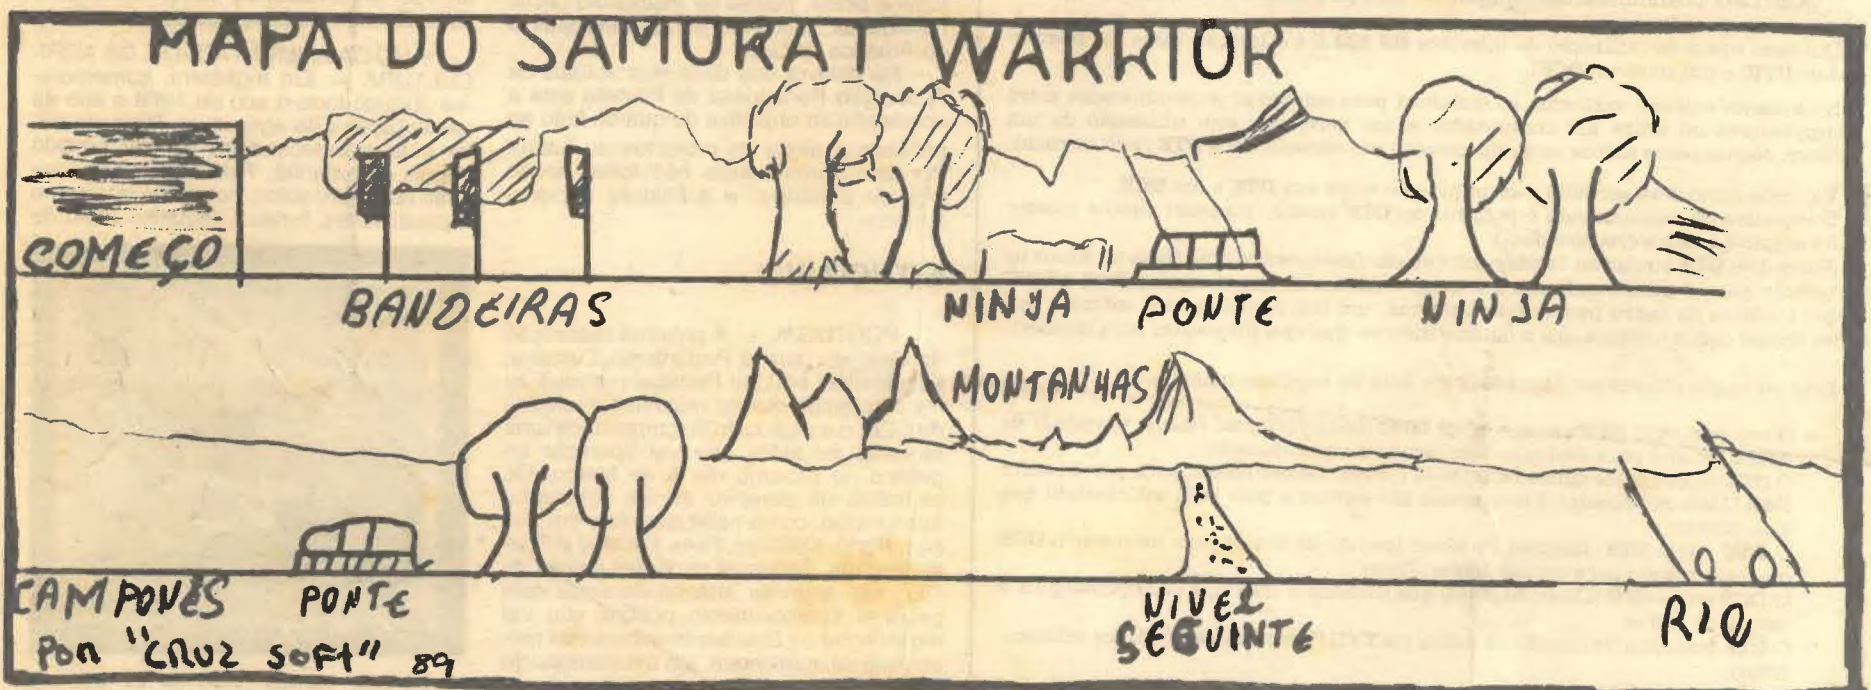 MAPA DO SAMURAI WARRIOR
COMEÇO
BANDEIRAS
NINJA
PONTE
NINJA
MONTANHAS
CAMPONÊS
PONTE
NIVEL
SEGUINTE
RIO
POR "CRUZ SOFT" 89